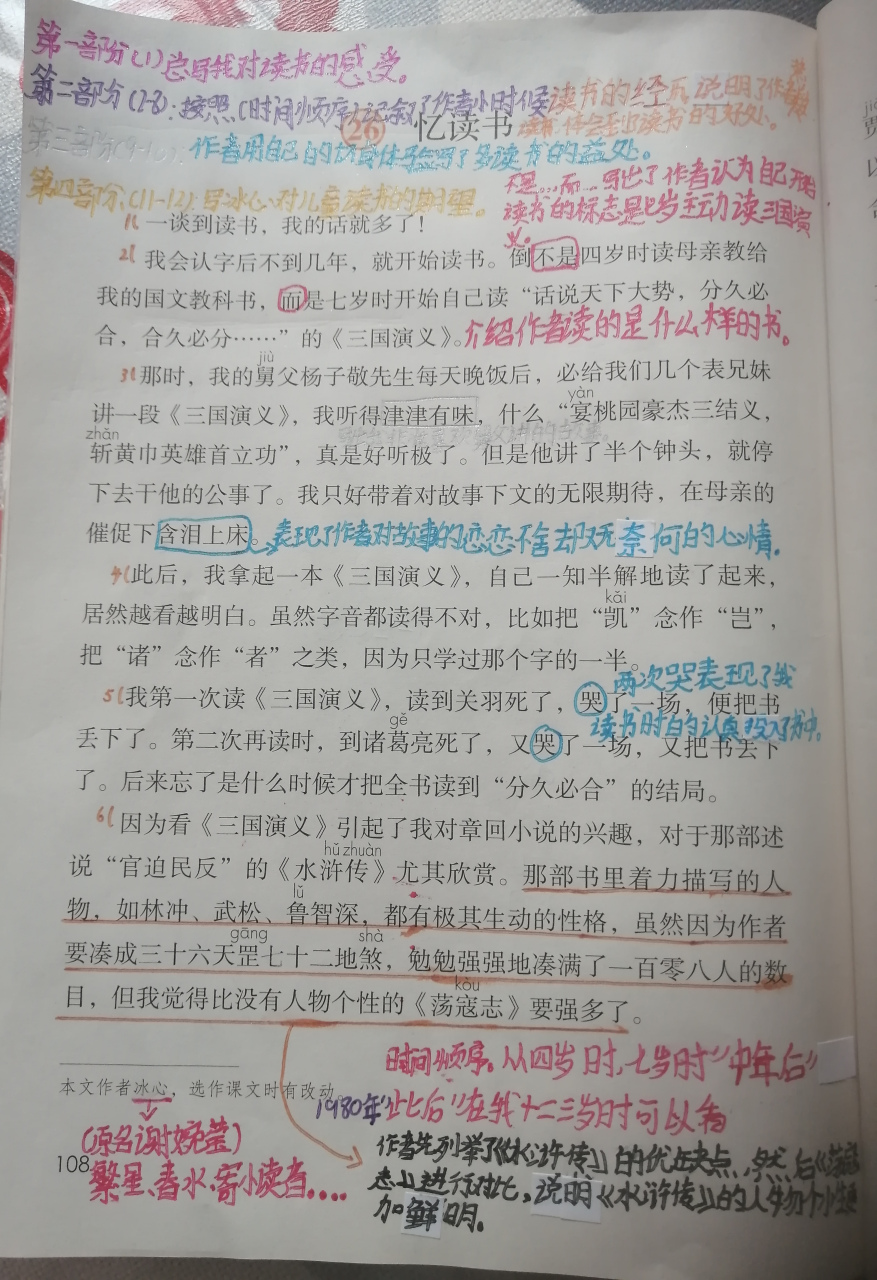 第一部分(1)总写我对读书的感受。
第二部分(2-8):按照(时间顺序)记叙了作者小时候读书的经历,说明了作者
读书体会到读书的好处。
26 忆读书
第三部分(9-10):作者用自己的切身体验写了多读书的益处。
第四部分(11-12):写冰心对儿童读书的期望。
不是…而…写出了作者认为自己开始
读书的标志是七岁主动读三国演
义。
1( 一谈到读书,我的话就多了!
2( 我会认字后不到几年,就开始读书。倒不是四岁时读母亲教给
我的国文教科书,而是七岁时开始自己读“话说天下大势,分久必
合,合久必分……”的《三国演义》。介绍作者读的是什么样的书。
jiù
3( 那时,我的舅父杨子敬先生每天晚饭后,必给我们几个表兄妹
yàn
讲一段《三国演义》,我听得津津有味,什么“宴桃园豪杰三结义,
zhǎn
斩黄巾英雄首立功”,真是好听极了。但是他讲了半个钟头,就停
下去干他的公事了。我只好带着对故事下文的无限期待,在母亲的
催促下含泪上床。表现了作者对故事的恋恋不舍却又无奈何的心情.
4( 此后,我拿起一本《三国演义》,自己一知半解地读了起来,
kǎi
居然越看越明白。虽然字音都读得不对,比如把“凯”念作“岂”,
把“诸”念作“者”之类,因为只学过那个字的一半。
两次哭表现了我
5( 我第一次读《三国演义》,读到关羽死了,哭了一场,便把书
读书时的认真,投入书中。
gě
丢下了。第二次再读时,到诸葛亮死了,又哭了一场,又把书丢下
了。后来忘了是什么时候才把全书读到“分久必合”的结局。
6( 因为看《三国演义》引起了我对章回小说的兴趣,对于那部述
hǔ zhuàn
说“官迫民反”的《水浒传》尤其欣赏。那部书里着力描写的人
lǔ
物,如林冲、武松、鲁智深,都有极其生动的性格,虽然因为作者
gāng shà
要凑成三十六天罡七十二地煞,勉勉强强地凑满了一百零八人的数
kòu
目,但我觉得比没有人物个性的《荡寇志》要强多了。
时间顺序。从四岁时,七岁时“中年后”
本文作者冰心,选作课文时有改动。
1980年“此后”在我十二三岁时可以看
(原名谢婉莹)
繁星、春水、寄小读者....
作者先列举了《水浒传》的优缺点,然后《荡寇
志》进行对比,说明《水浒传》的人物个性更
加鲜明.
108